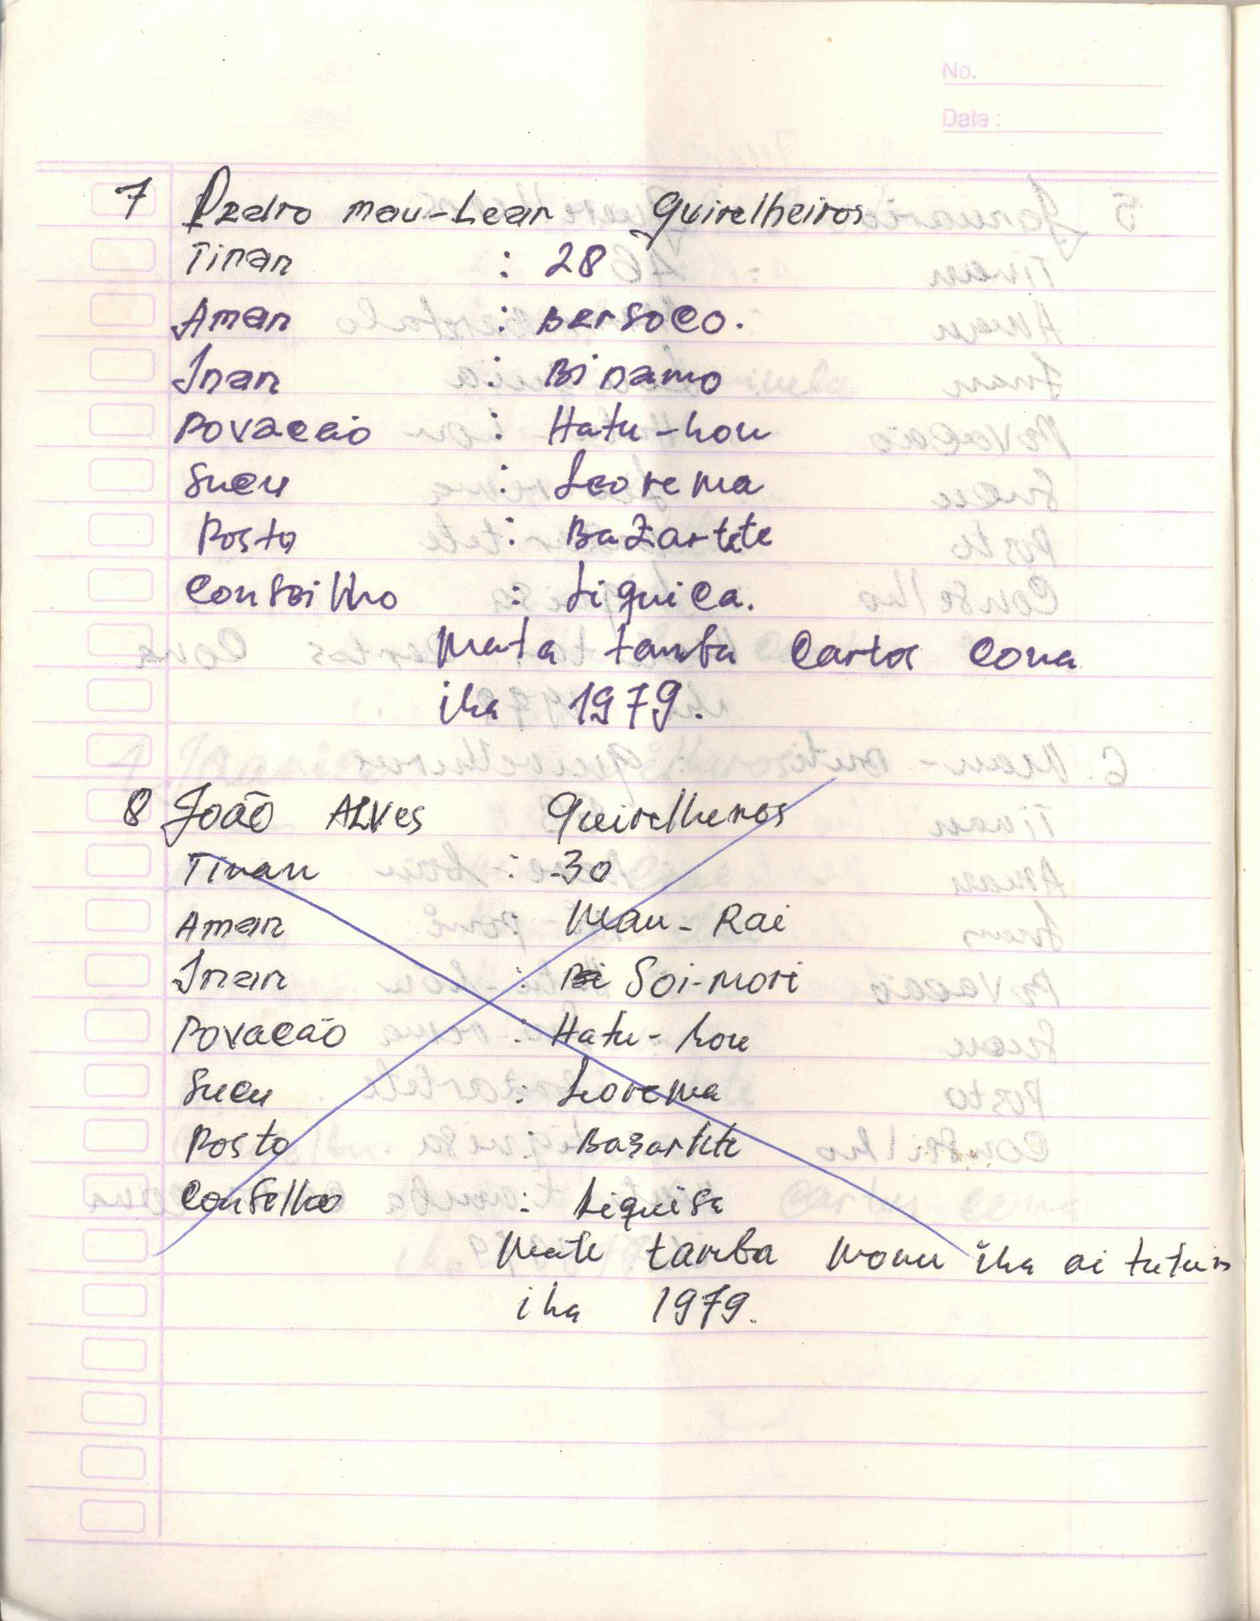 No.
Date :
7 Pedro mau-Lear Quirelheiros
Tinan : 28
Aman : Bersoco.
Inan : Bi namo
Povacão : Hatu-hou
Sucu : Leorema
Posto : Bazartete
Conseilho : Liquica.
Mata tamba Carlos Cona
iha 1979.
8 João ALVes Queirelheros
Tinan : 30
Aman : Mau-Rai
Inan : Soi-mori
Povacão : Hatu-hou
Sucu : Lorema
Posto : Bazartete
Conselho : Liquisa
Mate tamba monu iha ai tutun
iha 1979.